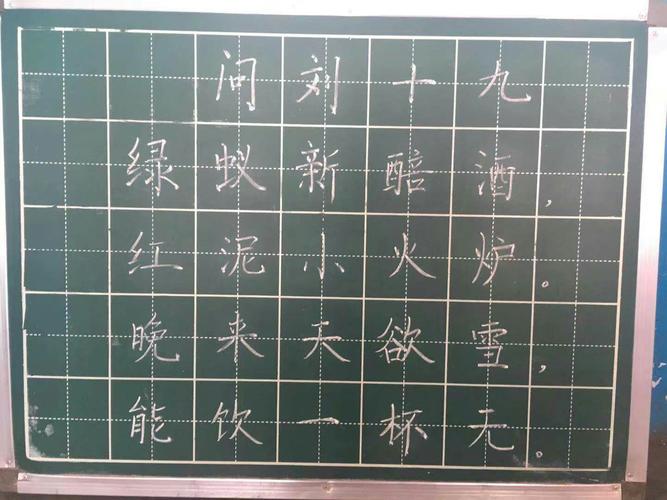 问刘十九
绿蚁新醅酒，
红泥小火炉。
晚来天欲雪，
能饮一杯无。